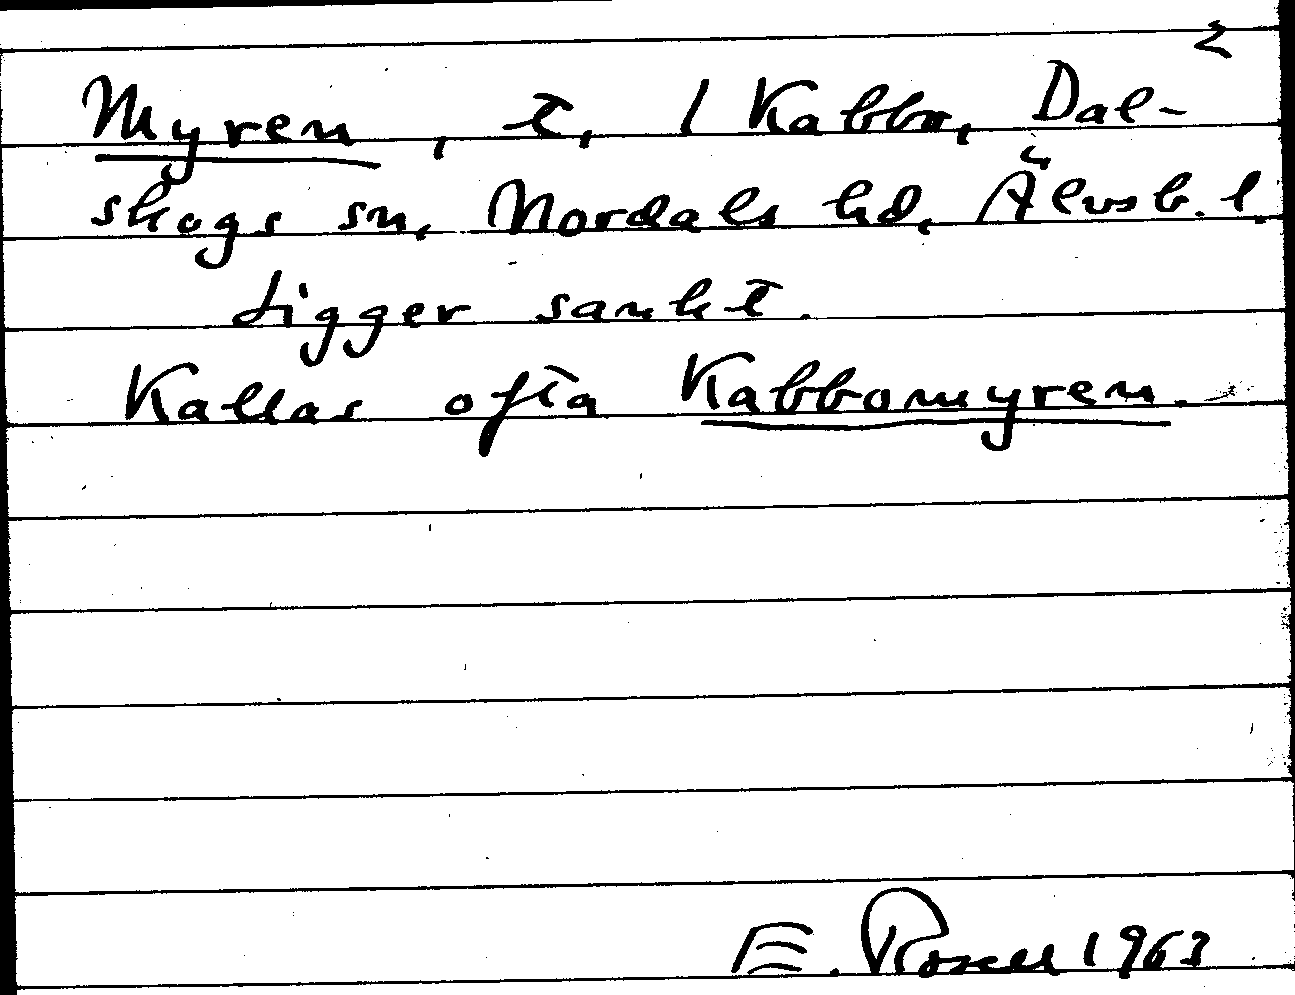 2
Myren, t, 1 Kabbo, Dal-
skogs sn, Nordals hd, Älvsb. l.
Ligger sankt.
Kallas ofta Kabbomyren.
E. Rosell 1963